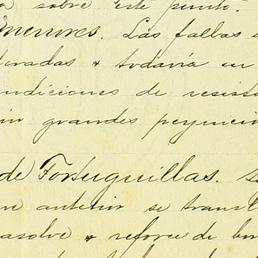 sobre este punto.
menores. Las fallas
oradas & todavía en
ndiciones de resist
in grandes
de Fortuguillas.
anterior se transl
asolve & reforce de